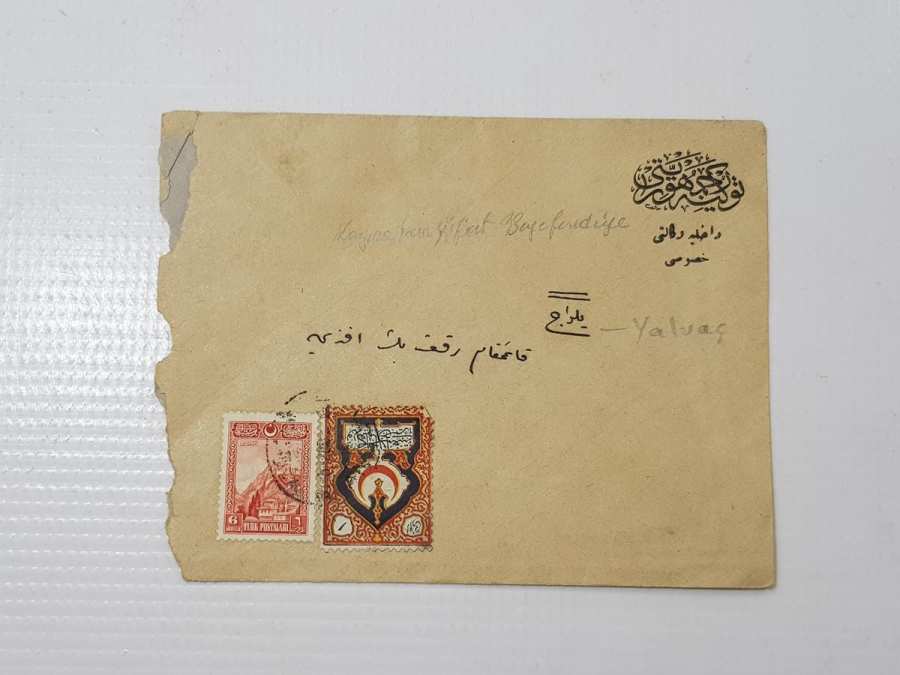 توركيه جمهوريتى
داخليه وكالتى
خصوصى
Kaymakam Rifat Beyefendiye
يلواج
— Yalvaç
قائمقام رفعت بك افندي
6
TÜRK POSTALARI
٦
١